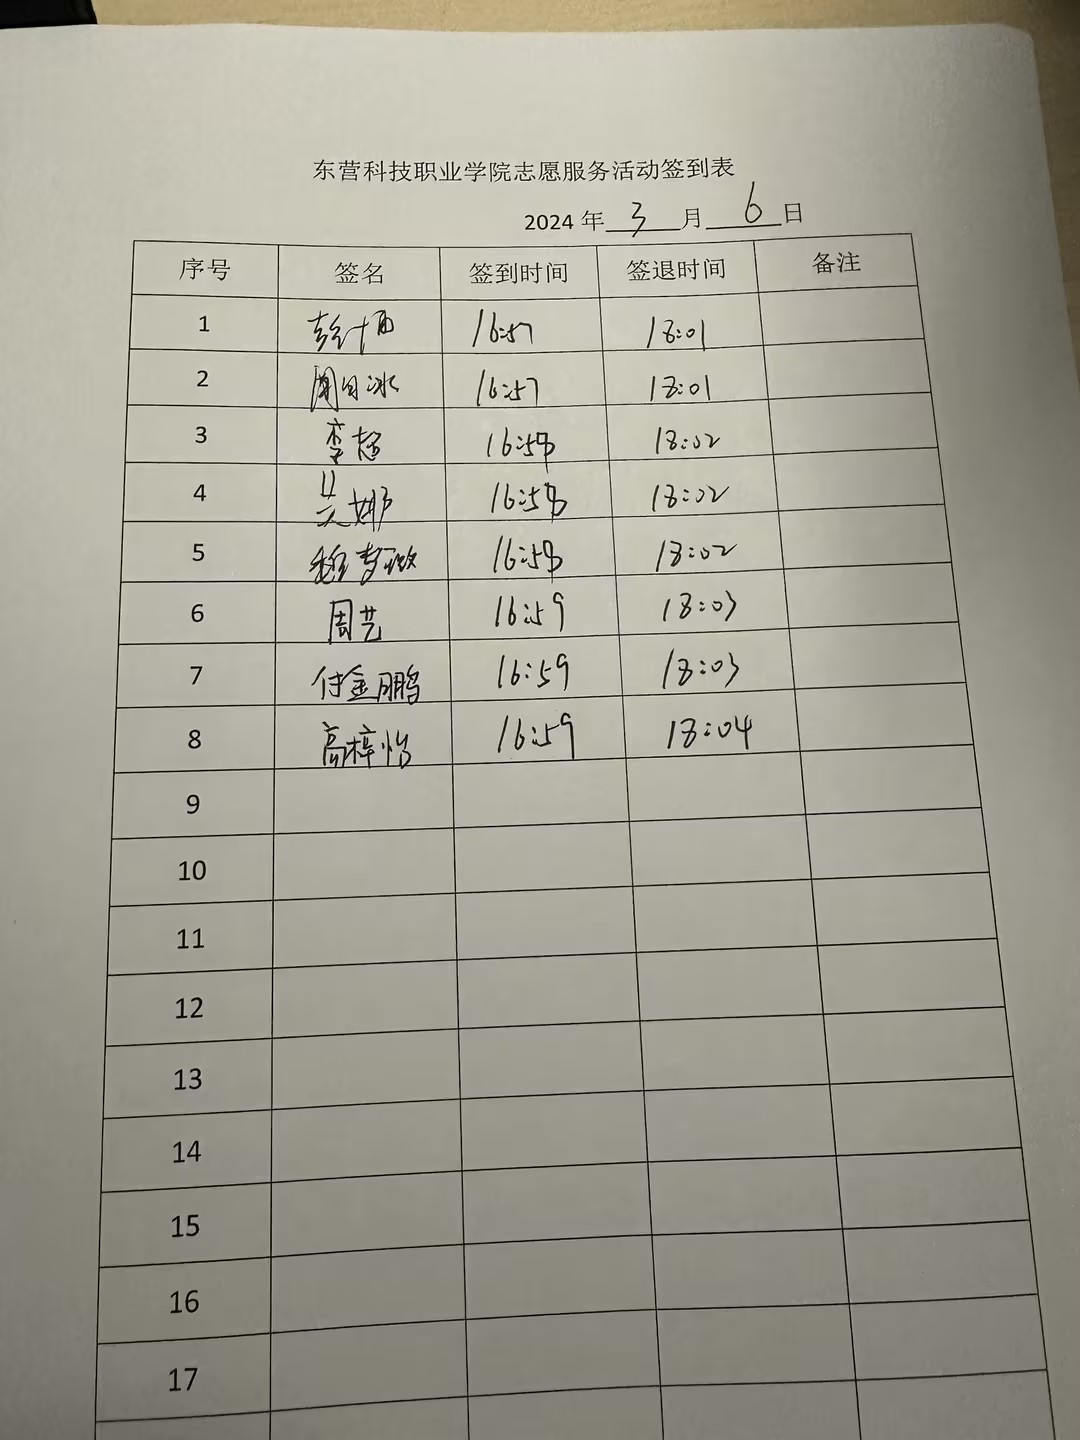 东营科技职业学院志愿服务活动签到表
2024 年 3 月 6 日
序号 签名 签到时间 签退时间 备注
1 16:57 18:01
2 16:57 18:01
3 李超 16:58 18:02
4 16:58 18:02
5 16:58 18:02
6 周艺 16:59 18:03
7 付金鹏 16:59 18:03
8 高梓怡 16:59 18:04
9
10
11
12
13
14
15
16
17